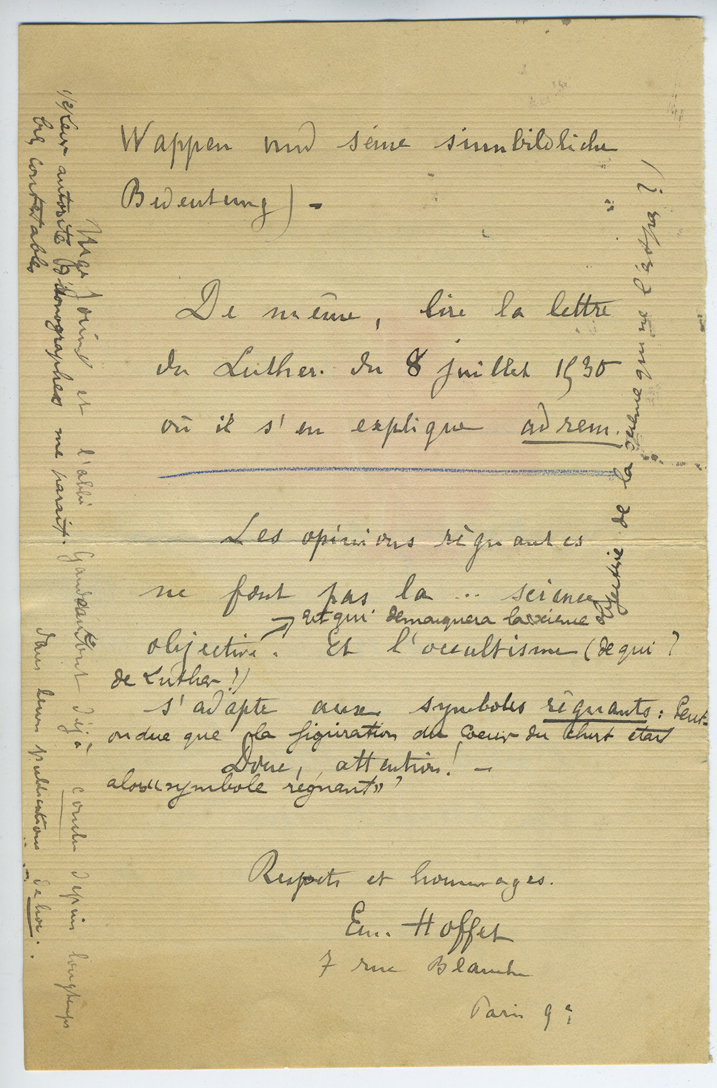 Wappen und seine sinnbildliche
Bedeutung) -
De même, lire la lettre
du Luther du 8 juillet 1530
où il s'en explique ad rem.
Les opinions régnantes
ne font pas la ... science
et qui démarquera la science
objective. Et l'occultisme (de qui ?
de Luther !)
s'adapte aux symboles régnants : Peut-
on dire que la figuration du Coeur du Christ était
Donc, attention ! -
alors "symbole régnant" ?
Respects et hommages.
Em. Hoffet
7 rue Blanche
Paris 9e
de la science qui ne l'est pas ?)
Mgr Jouin et l'abbé ont déjà conclu depuis longtemps
dans leurs publications de hoc.
(2) Leur autorité d'iconographes me paraît
très contestable